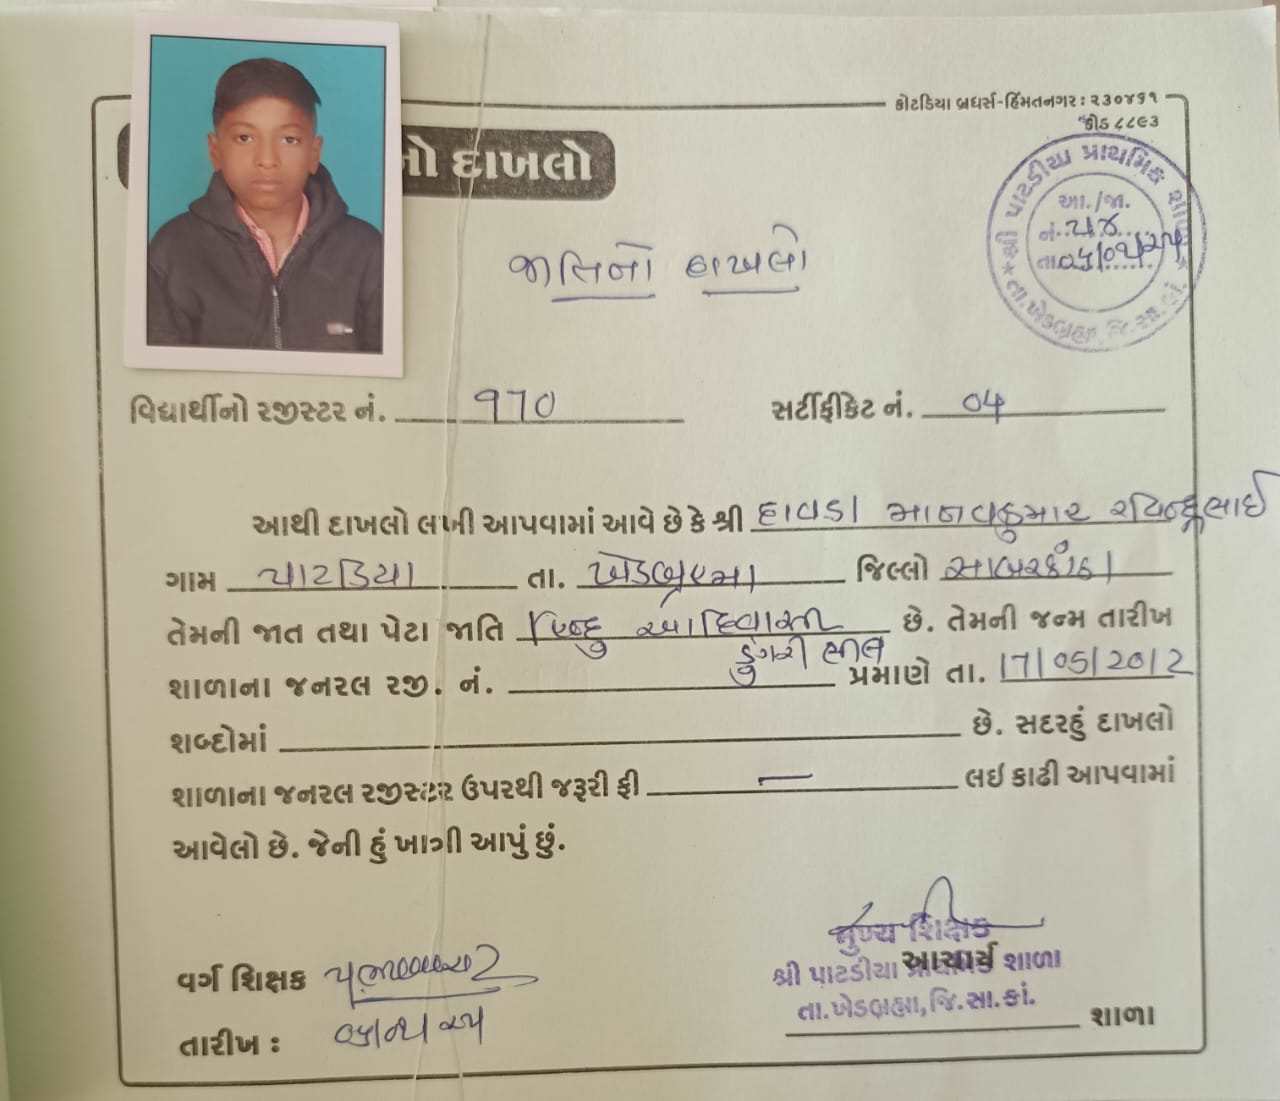 કોટડિયા બ્રધર્સ-હિંમતનગર : ૨૩૦૪૬૧
કોડ ૮૮૯૩
નો દાખલો
શ્રી પાટડીયા પ્રાથમિક શાળા
તા.ખેડબ્રહ્મા, જિ.સા.કાં.
આ./જા.
નં.
તા.
જાતિનો દાખલો
વિદ્યાર્થીનો રજીસ્ટર નં. 970 સર્ટીફીકેટ નં. 04
આથી દાખલો લખી આપવામાં આવે છે કે શ્રી ડાવડા માનવકુમાર રવિન્દ્રભાઈ
ગામ પાટડિયા તા. ખેડબ્રહ્મા જિલ્લો સાબરકાંઠા
તેમની જાત તથા પેટા જાતિ હિન્દુ આદિવાસી છે. તેમની જન્મ તારીખ
ડુંગરી ભીલ
શાળાના જનરલ રજી. નં. પ્રમાણે તા. 17/05/2012
શબ્દોમાં છે. સદરહું દાખલો
શાળાના જનરલ રજીસ્ટર ઉપરથી જરૂરી ફી — લઇ કાઢી આપવામાં
આવેલો છે. જેની હું ખાત્રી આપું છું.
મુખ્ય શિક્ષક
વર્ગ શિક્ષક આચાર્ય
શ્રી પાટડીયા પ્રાથમિક શાળા
તા.ખેડબ્રહ્મા, જિ.સા.કાં.
તારીખ : શાળા